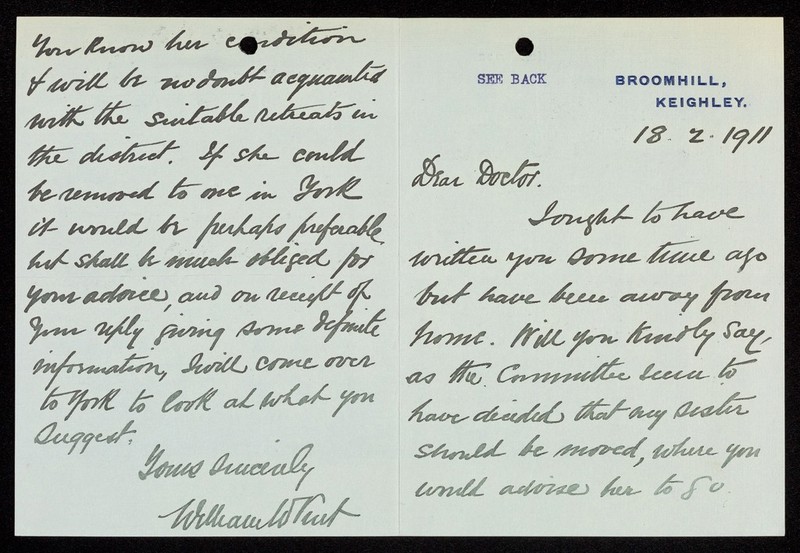 SEE BACK
BROOMHILL,
KEIGHLEY.
18. 2. 1911
Dear Doctor.
I ought to have
written you some time ago
but have been away from
home. Will you kindly say,
as the Committee seem to
have decided that my sister
should be moved, where you
would advise her to go.
You know her condition
& will be no doubt acquainted
with the suitable retreats in
the district. If she could
be removed to one in York
it would be perhaps preferable,
but shall be much obliged for
your advice, and on receipt of
your reply giving some definite
information, I will come over
to York to look at what you
suggest.
Yours sincerely
William W